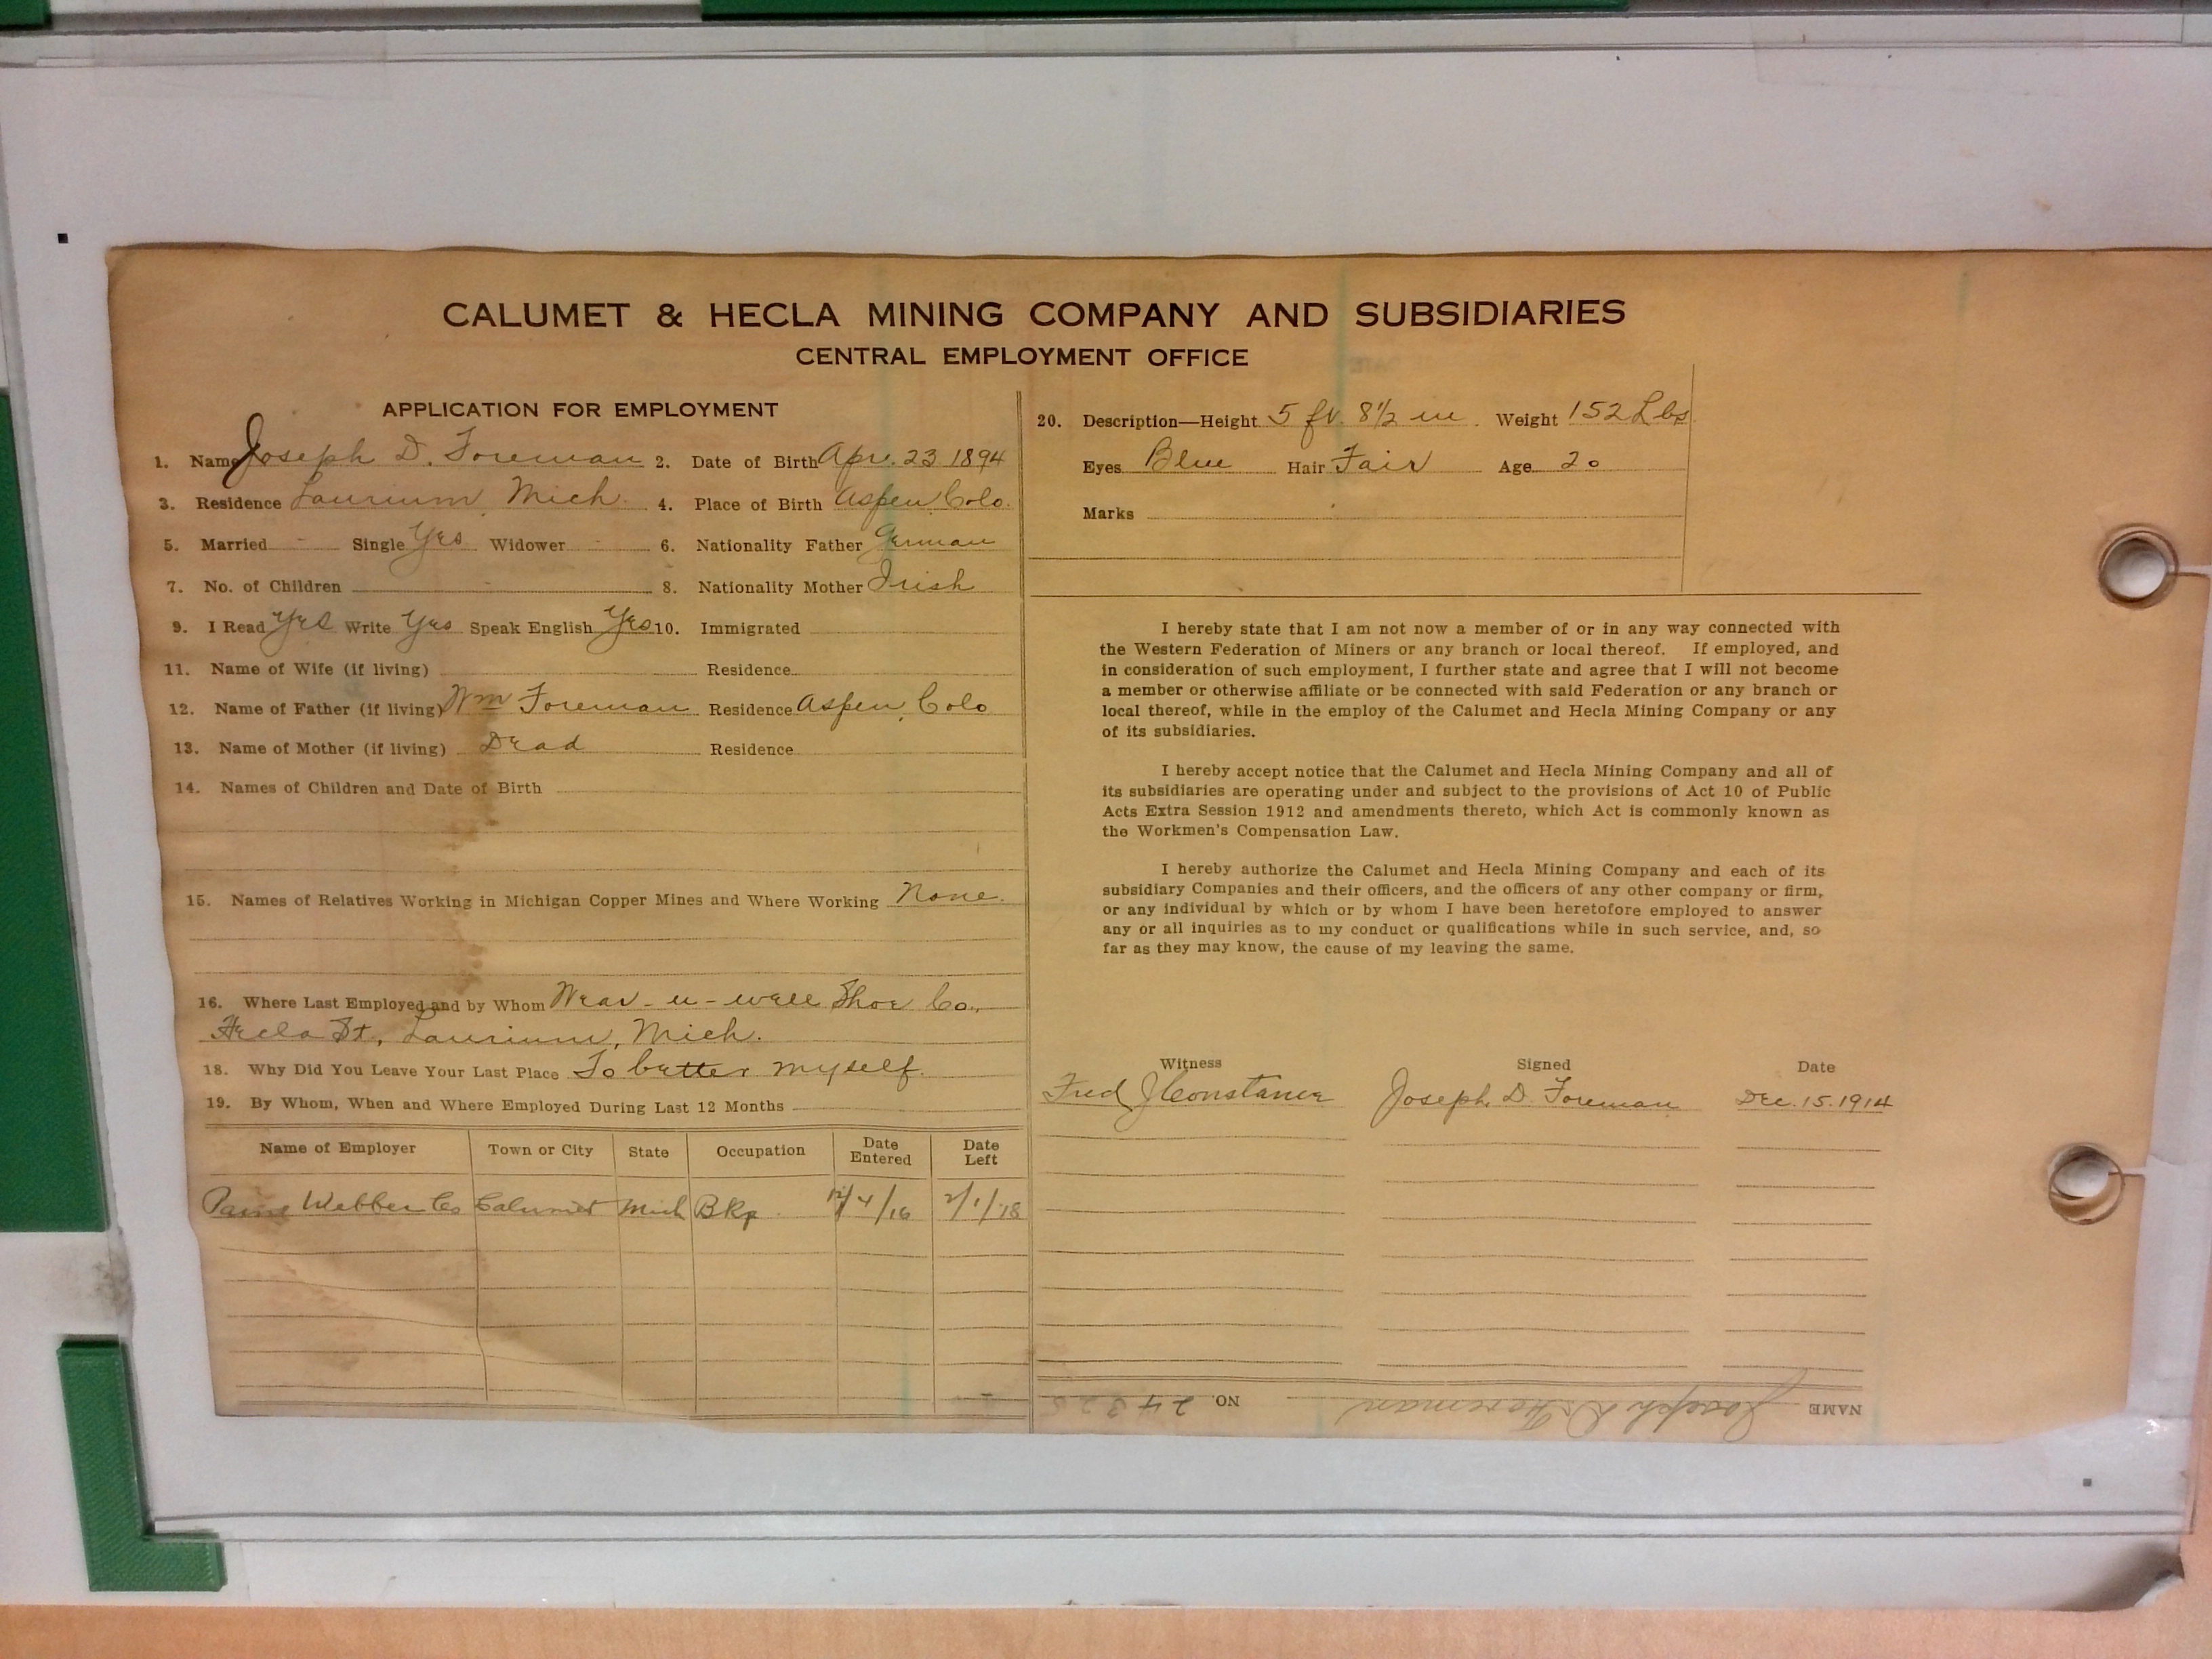 CALUMET & HECLA MINING COMPANY AND SUBSIDIARIES
CENTRAL EMPLOYMENT OFFICE
APPLICATION FOR EMPLOYMENT
1. Name Joseph D. Foreman 2. Date of Birth Apr. 23 1894
3. Residence Laurium, Mich. 4. Place of Birth Aspen, Colo.
5. Married - Single Yes Widower - 6. Nationality Father German
7. No. of Children - 8. Nationality Mother Irish
9. I Read Yes Write Yes Speak English Yes 10. Immigrated
11. Name of Wife (if living) Residence
12. Name of Father (if living) Wm Foreman Residence Aspen, Colo
13. Name of Mother (if living) Dead Residence
14. Names of Children and Date of Birth
15. Names of Relatives Working in Michigan Copper Mines and Where Working None.
16. Where Last Employed and by Whom Wear-u-well Shoe Co.,
Hecla St, Laurium, Mich.
18. Why Did You Leave Your Last Place To better myself.
19. By Whom, When and Where Employed During Last 12 Months
Name of Employer Town or City State Occupation Date Entered Date Left
Paine Webber Co Calumet Mich Bkp. 12/4/16 2/1/18
20. Description—Height 5 ft. 8½ in. Weight 152 Lbs.
Eyes Blue Hair Fair Age 20
Marks
I hereby state that I am not now a member of or in any way connected with
the Western Federation of Miners or any branch or local thereof. If employed, and
in consideration of such employment, I further state and agree that I will not become
a member or otherwise affiliate or be connected with said Federation or any branch or
local thereof, while in the employ of the Calumet and Hecla Mining Company or any
of its subsidiaries.
I hereby accept notice that the Calumet and Hecla Mining Company and all of
its subsidiaries are operating under and subject to the provisions of Act 10 of Public
Acts Extra Session 1912 and amendments thereto, which Act is commonly known as
the Workmen's Compensation Law.
I hereby authorize the Calumet and Hecla Mining Company and each of its
subsidiary Companies and their officers, and the officers of any other company or firm,
or any individual by which or by whom I have been heretofore employed to answer
any or all inquiries as to my conduct or qualifications while in such service, and, so
far as they may know, the cause of my leaving the same.
Witness Signed Date
Fred J Constance Joseph D. Foreman Dec. 15. 1914
NAME Joseph D. Foreman NO.